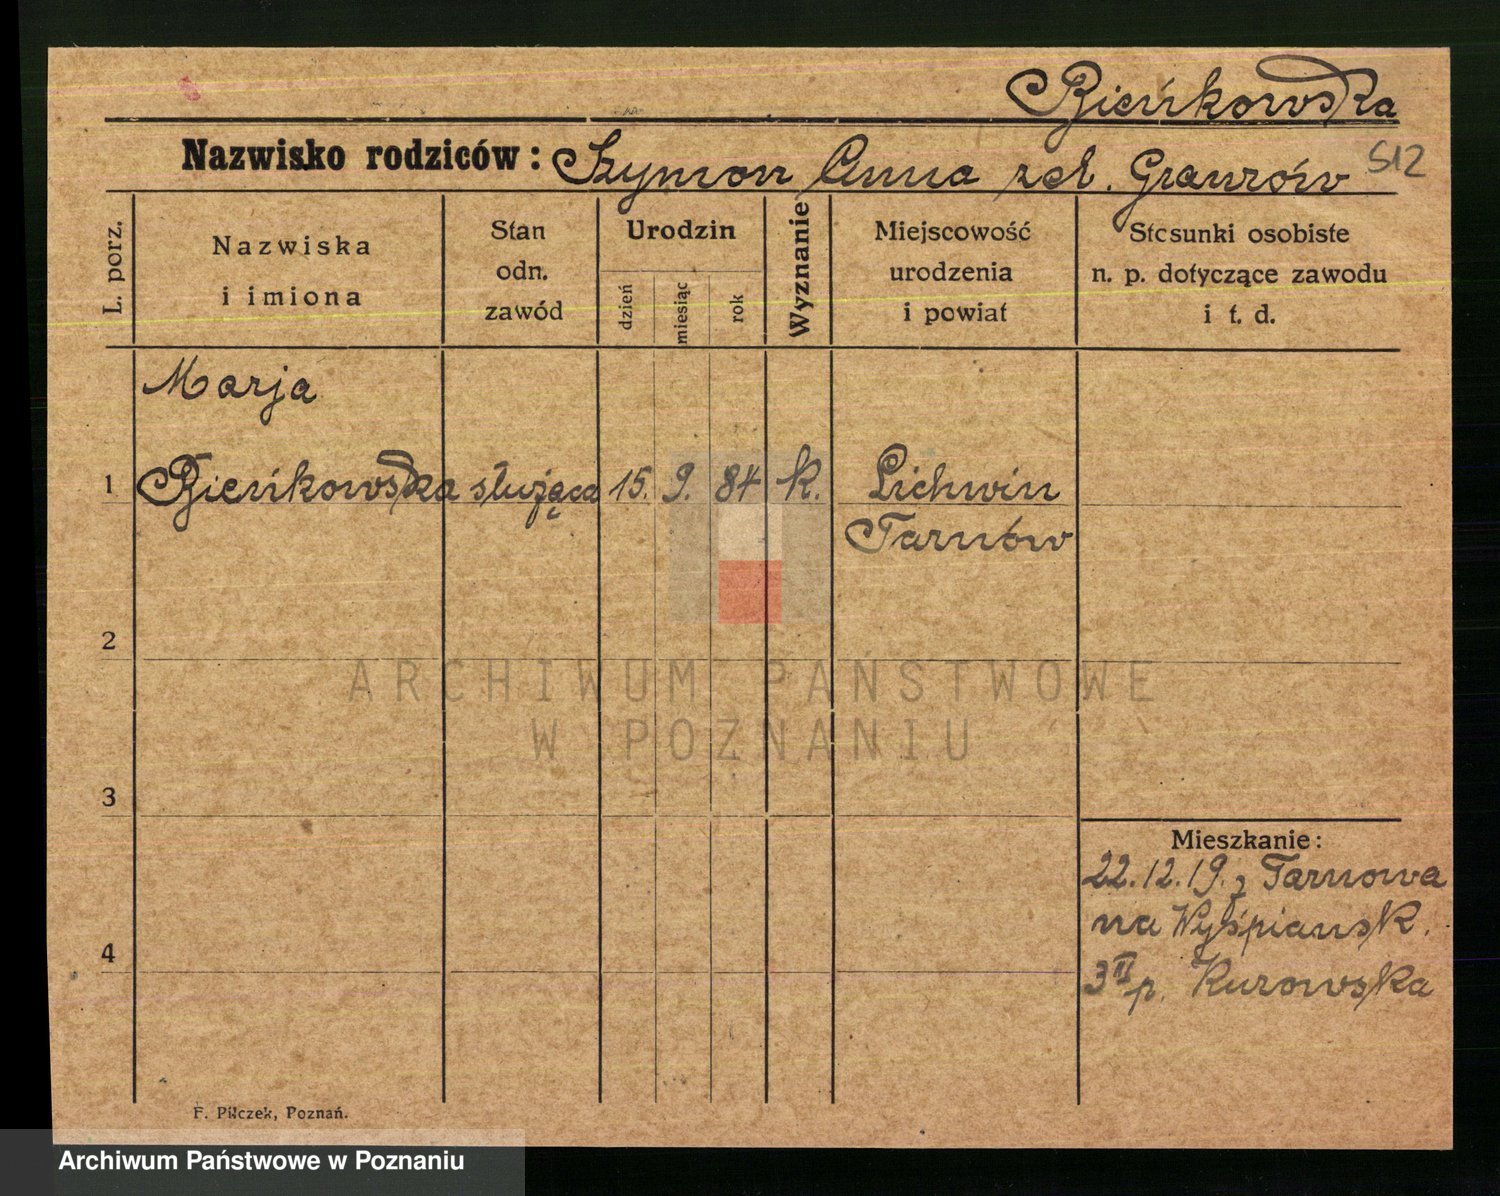 Bieńkowska
Nazwisko rodziców: Szymon Anna zd. Granzów
S12
L. porz.
Nazwiska
i imiona
Stan
odn.
zawód
Urodzin
dzień
miesiąc
rok
Wyznanie
Miejscowość
urodzenia
i powiat
Stosunki osobiste
n. p. dotyczące zawodu
i t. d.
Marja
1 Bieńkowska służąca 15. 9. 84 k. Lichwin
Tarnów
2
3
4
Mieszkanie:
22.12.19. z Tarnowa
na Wyśpiańsk.
3 II p. Kurowska
F. Pilczek, Poznań.
ARCHIWUM PAŃSTWOWE
W POZNANIU
Archiwum Państwowe w Poznaniu